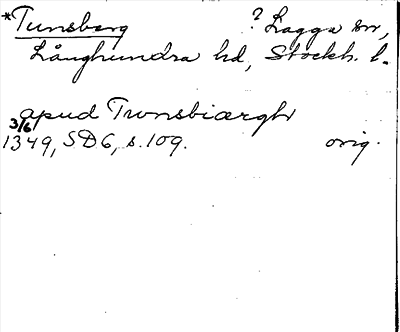 *Tunsberg ? Lagga sn,
Långhundra hd, Stockh. l.
apud Tunsbiærgh
3/6 1349, SD6, s. 109. orig.